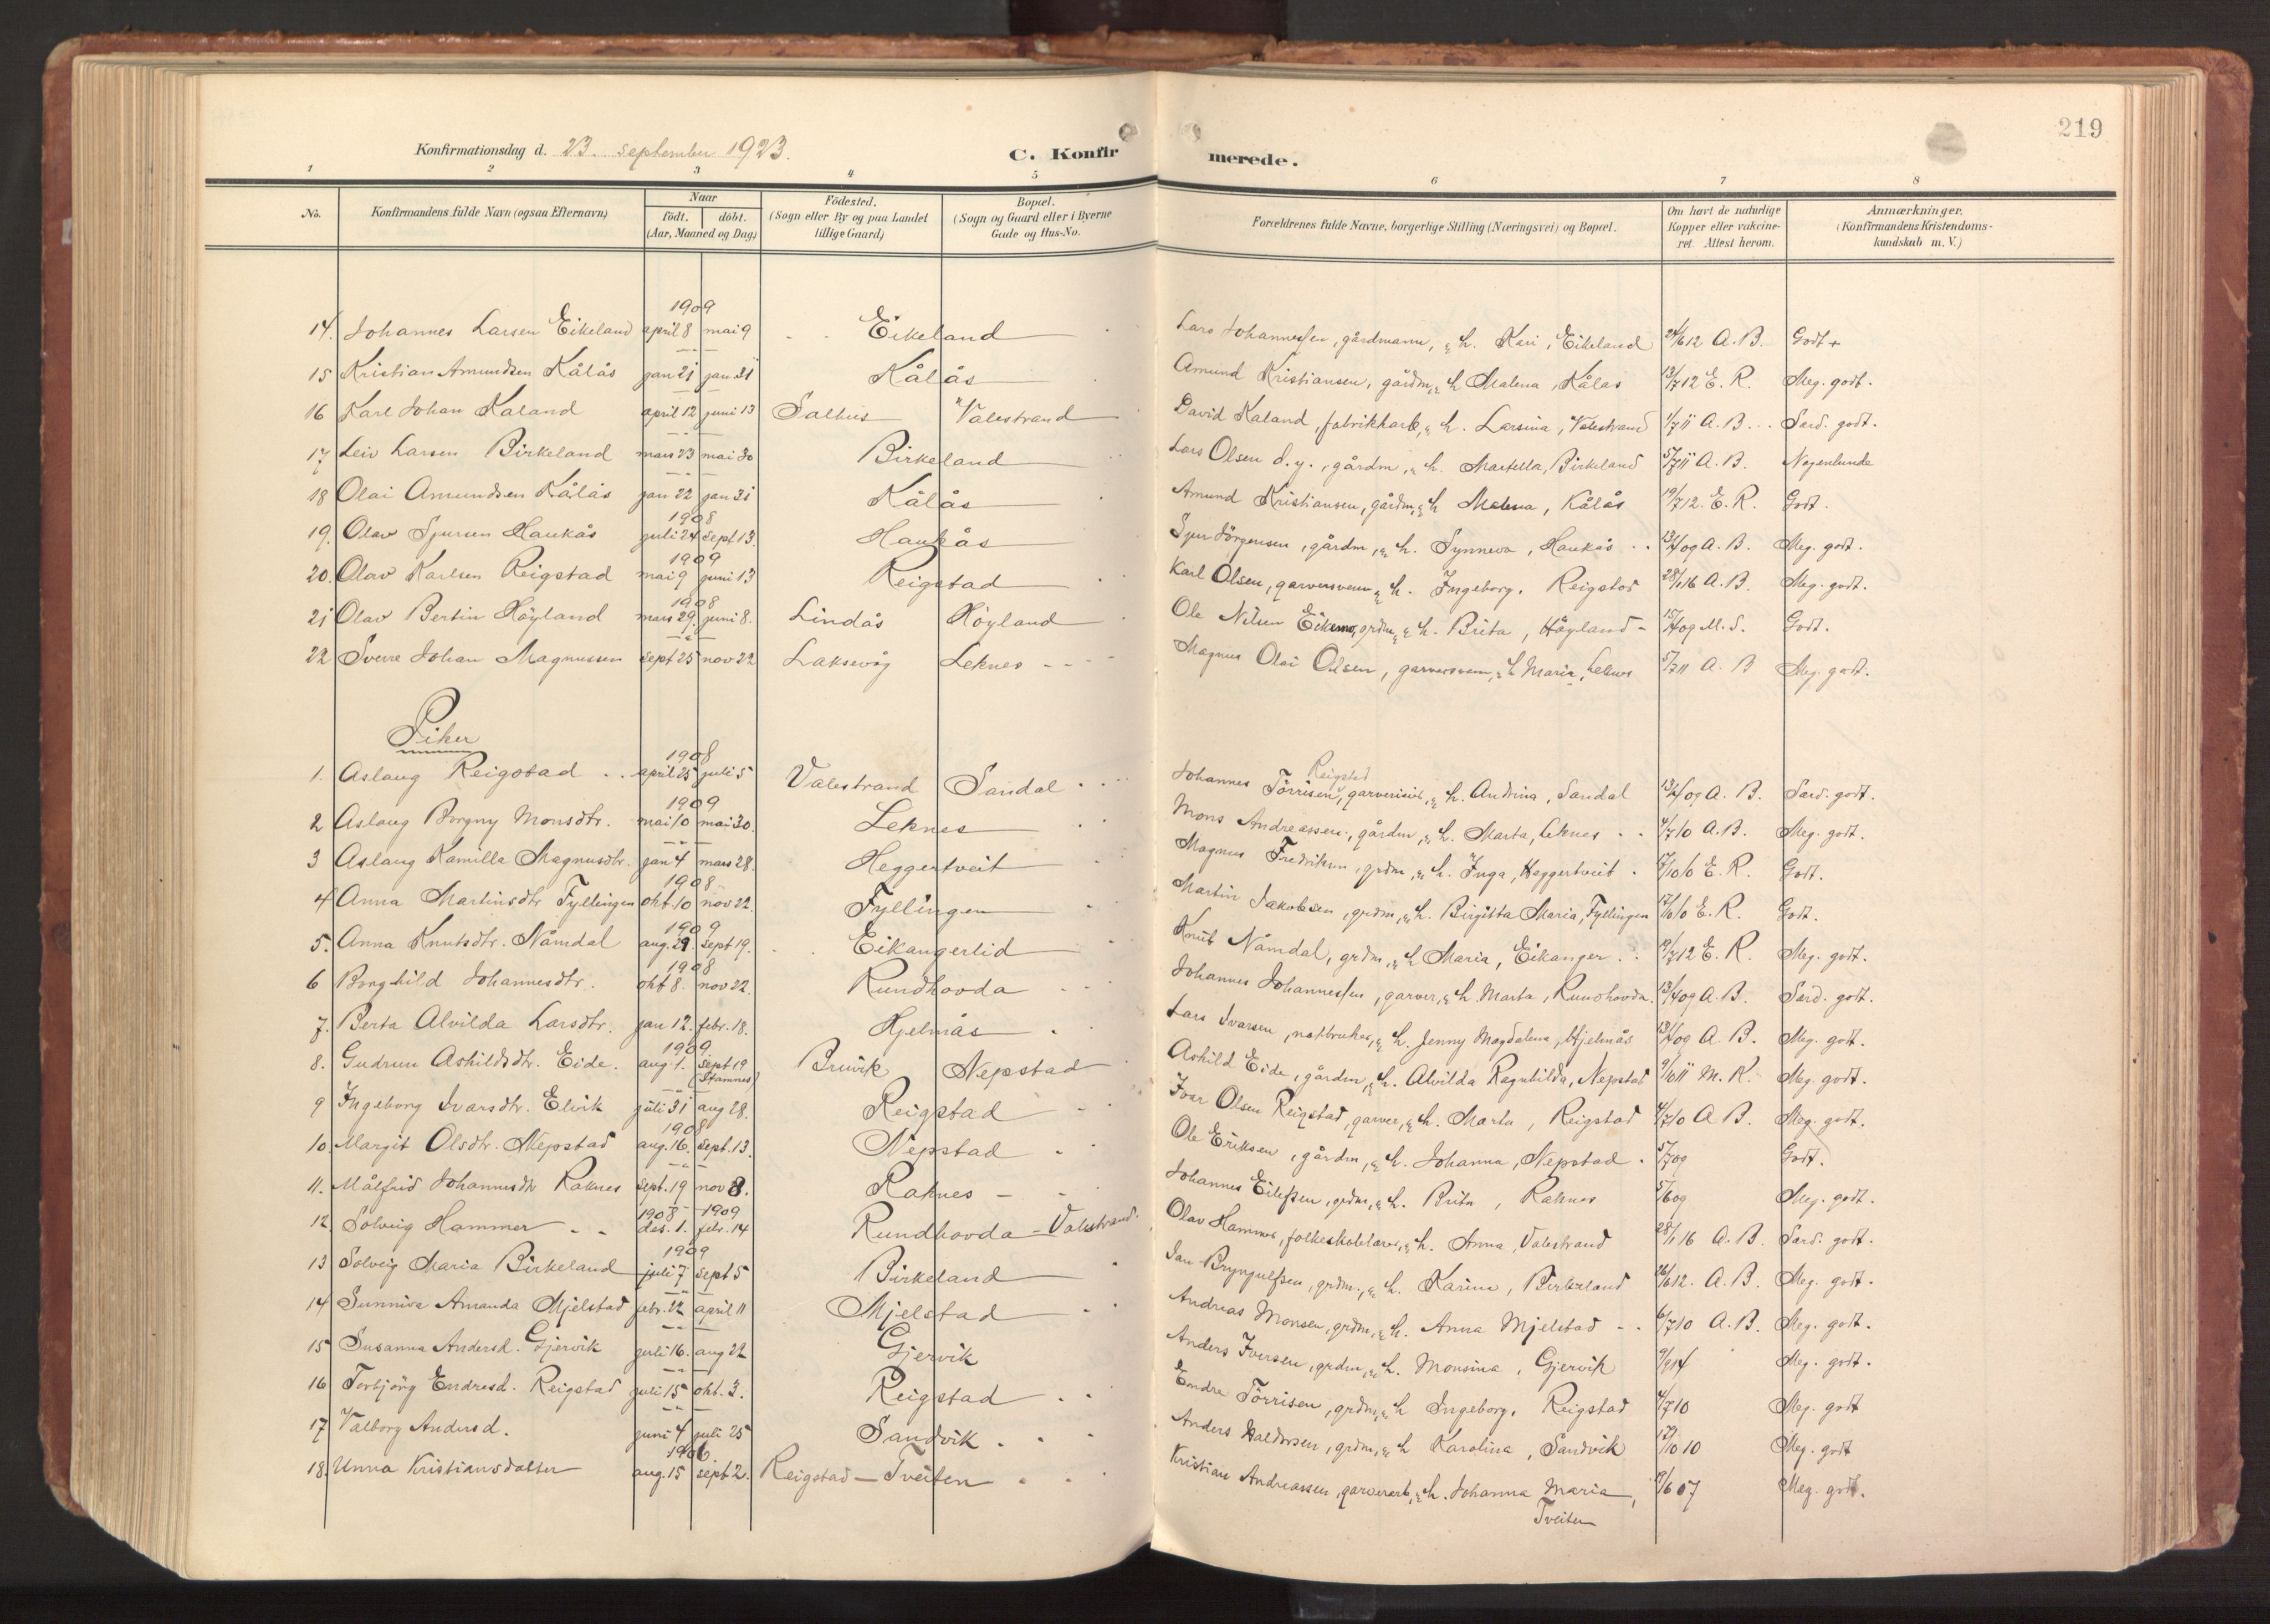 219
Konfirmationsdag d. 23. september 1923.
C. Konfirmerede.
1 2 3 4 5 6 7 8
No.
Konfirmandens fulde Navn (ogsaa Efternavn)
Naar
født. døbt.
(Aar, Maaned og Dag)
Fødested.
(Sogn eller By og paa Landet
tillige Gaard)
Bopæl.
(Sogn og Gaard eller i Byerne
Gade og Hus-No.
Forældrenes fulde Navne, borgerlige Stilling (Næringsvei) og Bopæl.
Om havt de naturlige
Kopper eller vakcine-
ret. Attest herom.
Anmærkninger.
(Konfirmandens Kristendoms-
kundskab m. V.)
1909
14. Johannes Larsen Eikeland april 8 mai 9 Eikeland Lars Johannessen, gårdmann, & h. Kari, Eikeland 24/6 12 A.B. Godt +
15 Kristian Amundsen Kålås jan 21 jan 31 Kålås Amund Kristiansen, gårdm, & h Malena, Kålås 13/7 12 E. R. Meg. godt.
16 Karl Johan Kaland april 12 juni 13 Salhus Valestrand David Kaland, fabrikkarb, & h. Larsina, Valestrand 1/7 11 A.B. Særd. godt.
17 Leiv Larsen Birkeland mars 23 mai 30 Birkeland Lars Olsen d.y., gårdm, & h. Martella, Birkeland 5/7 11 A.B. Nogenlunde
18 Olai Amundsen Kålås jan 22 jan 31 Kålås Amund Kristiansen, gårdm, & h Malena, Kålås 19/7 12. E. R. Godt.
1908
19. Olav Sjursen Haukås juli 24 sept 13. Haukås Sjur Jörgensen, gårdm, & h. Synneva, Haukås 13/4 09 A. B. Meg. godt.
1909
20. Olav Karlsen Reigstad mai 9 juni 13 Reigstad Karl Olsen, garversvenn & h. Ingeborg, Reigstad 28/1 16 A. B. Meg. godt.
1908
21 Olav Bertin Höyland mars 29. juni 8. Lindås Höyland Ole Nilsen Eikemo, grdm, & h. Brita, Höyland 15/4 09 M. S. Godt.
22 Sverre Johan Magnussen sept 25 nov 22 Laksevåg Leknes Magnus Olai Olsen, garversvenn, & h Maria, Leknes 5/7 11 A. B Meg. godt.
Piker
1908
1. Aslaug Reigstad april 25 juli 5 Valestrand Sandal Johannes Törrisen Reigstad, garverieier, & h. Andrina, Sandal 13/4 09 A. B. Særd. godt.
1909
2 Aslaug Borgny Monsdtr. mai 10 mai 30. Leknes Mons Andreassen, gårdm, & h. Marta, Leknes 4/7 10 A.B. Meg. godt.
3 Aslaug Kamilla Magnusdtr. jan 4 mars 28. Heggertveit Magnus Fredriksen, grdm, & h. Inga, Heggertveit 17/10 10 E. R. Godt.
1908
4 Anna Martinsdtr Fyllingen okt. 10 nov 22. Fyllingen Martin Jakobsen, grdm, & h. Birgitta Maria, Fyllingen 17/10 10 E. R. Godt.
1909
5. Anna Knutsdtr. Nåmdal aug. 29. sept 19. Eikangerlid Knut Nåmdal, grdm, & h Maria, Eikanger 19/7 12 E. R. Meg. godt.
1908
6 Borghild Johannesdtr. okt 8. nov 22. Rundhovda Johannes Johannessen, garver, & h. Marta, Rundhovda. 13/4 09 A. B. Særd. godt.
7. Berta Alvilda Larsdtr. jan 12. febr. 18. Hjelmås Lars Ivarsen, notbruker, & h. Jenny Magdalena, Hjelmås 13/4 09 A. B. Meg. godt.
1909
8. Gudrun Askildsdtr. Eide. aug 1. sept 19 (Stamnes) Bruvik Nepstad Askild Eide, gårdm, & h. Alvilda Ragnhilda, Nepstad 9/6 11 M. K. Meg. godt.
9 Ingeborg Ivarsdtr. Elvik juli 31 aug 28. Reigstad Ivar Olsen Reigstad, garver, & h. Marta, Reigstad 4/7 10 A B. Meg. godt.
1908
10. Margit Olsdtr. Nepstad aug. 16. sept. 13. Nepstad Ole Eriksen, gårdm, & h. Johanna, Nepstad 5/7 09 Godt.
11. Målfrid Johannesdtr Raknes sept. 19 nov 8. Raknes Johannes Eilefsen, grdm, & h. Brita, Raknes 5/6 09 Meg. godt.
1908 1909
12. Solveig Hammer des. 1. febr. 14 Rundhovda - Valestrand Olav Hammer, folkeskolelærer, & h. Anna, Valestrand 28/1 16 A. B. Særd. godt.
1909
13 Solveig Maria Birkeland juli 7 sept 5 Birkeland Jan Bryngulfsen, grdm, & h. Karina, Birkeland 26/6 12. A. B. Meg. godt.
14 Sunniva Amanda Mjelstad febr. 22 april 11 Mjelstad Andreas Monsen, grdm, & h. Anna Mjelstad 6/7 10 A.B. Meg. godt.
15 Susanna Andersd. Gjervik juli 16. aug 22 Gjervik Anders Iversen, grdm, & h. Monsina, Gjervik 9/9 14 Meg. godt.
16 Torbjörg Endresd. Reigstad juli 15 okt. 3. Reigstad Endre Törrisen, grdm, & h Ingeborg, Reigstad 4/7 10 Meg. godt
17 Valborg Andersd. juni 4 juli 25 Sandvik Anders Haldorsen, grdm, & h Karolina, Sandvik 17/10 10 Meg. godt
1906.
18. Unna Kristiansdatter aug. 15 sept 2. Reigstad - Tveiten Kristian Andreassen, garverarb, & h. Johanna Maria, 9/6 07 Meg. godt.
Tveiten